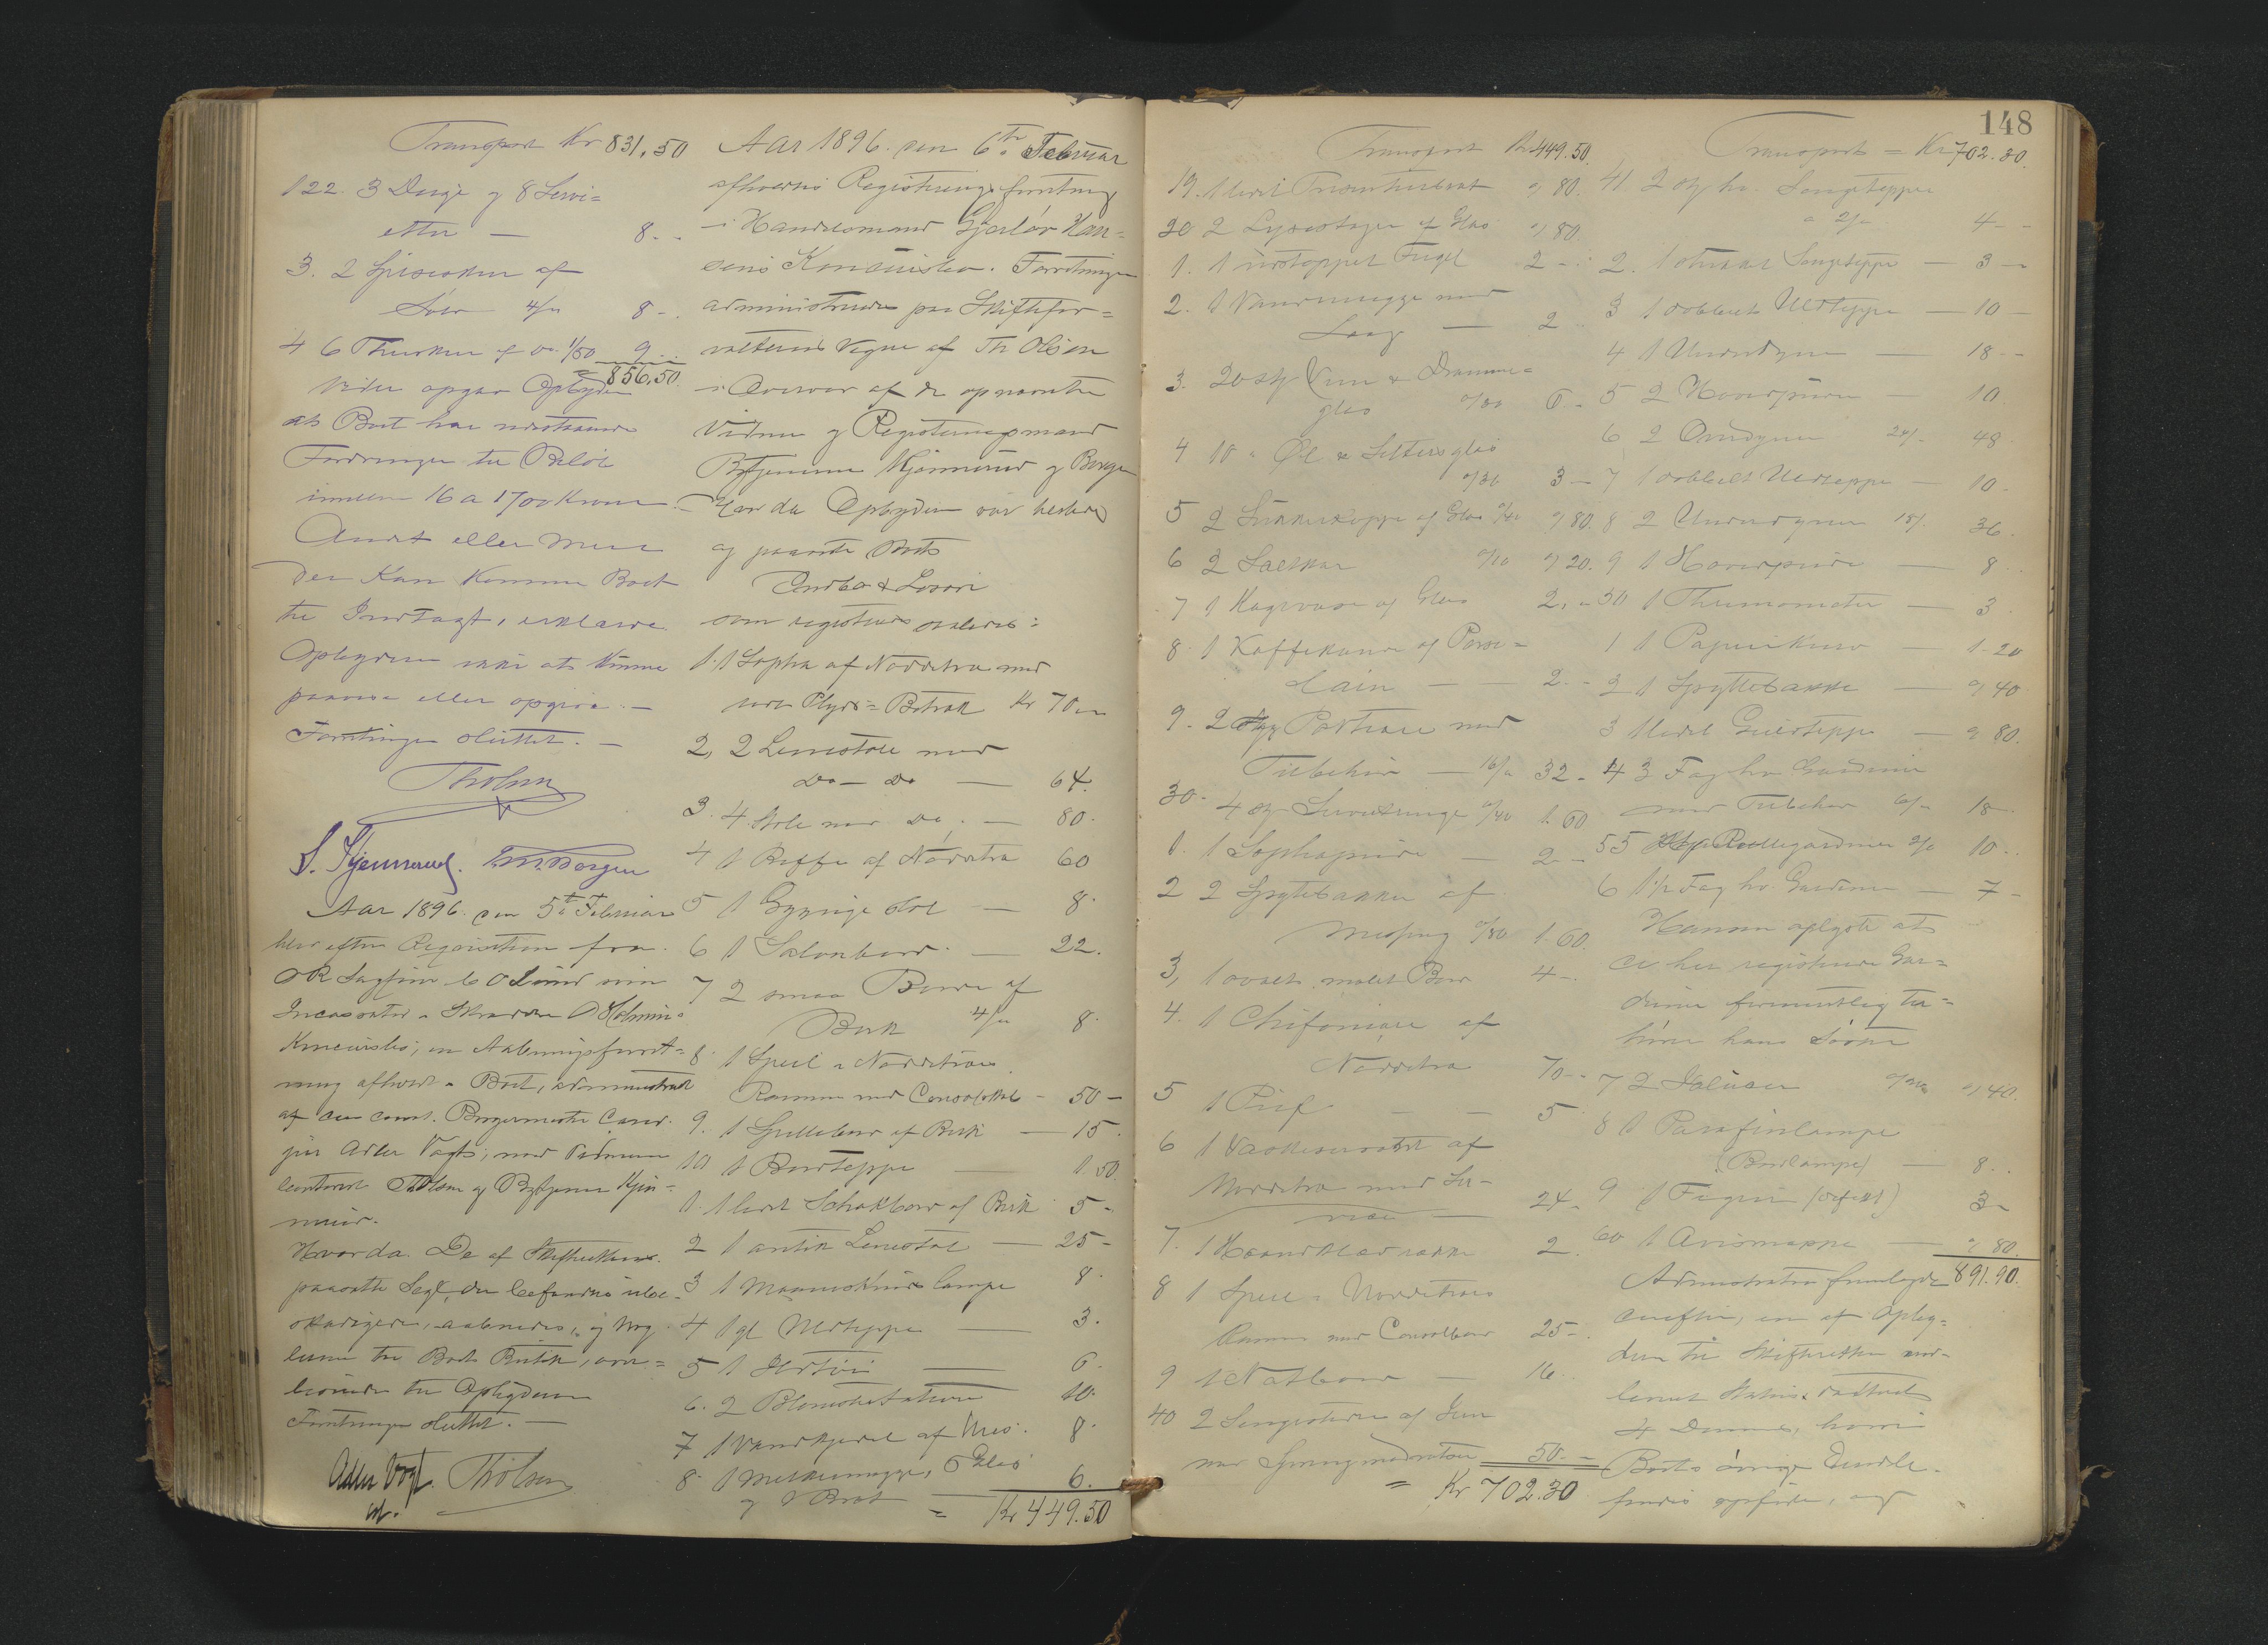 Transport Kr 831,50
122. 3 Duge og 8 Servi=
etter — 8-
3. 2 Spiseskeer af
Sølv 4/- 8-
4 6 Theskeer af do. 1/50 9 --
= 856,50.
Videre opgav Opbyderen
at Boet har udestaaende
Fordringer til Beløb
imellem 16 a 1700 Kroner. —
Andet eller mere
der kan komme Boet
til Indtægt, erklærede
Opbyderen ikke at kunne
paavise eller opgive. —
Forretningen sluttet. —
ThOlsen
S. Kjennerud. Borgen
Aar 1896. den 5te Februar
blev efter Requisition fra
OR Sagfører C O Lund som
Incassator i Skrædder Holmens
Konkursbo, en Aabningsforret=
ning afholdt i Boet, administreret
af den const. Borgermester Cand.
jur Adler Vogt; med Vidnerne
Contorist ThOlsen og Bytjener Kjen=
nerud.
Hvorda De af Skifteretten
paasatte Segl, der befandtes ube=
skadigede, aabnedes, og Nøg
lerne til Boets Butik, over=
leveredes til Opbyderen
Forretningen sluttet. —
Adler Vogt. ThOlsen
cst.
Aar 1896. den 6te Februar
afholdtes Registreringsforretning
i Handelsmand Gjerløv Han=
sens Konkursbo. Forretningen
administreredes paa Skiftefor=
valterens Vegne af Th Olsen
i Overvær af de opnævnte
Vidner og Registreringsmænd
Bytjenerne Kjennerud og Borgen
Hvor da Opbyderen var tilstede
og paaviste Boets
Indbo & Løsøre
som registreredes saaledes:
1. 1 Sopha af Nøddetræ med
rødt Plyds=Betræk Kr 70 --
2, 2 Lænestole med
Do — Do — 64.
3. 4 Stole med Do, — 80.
4 1 Buffe af Nøddetræ 60
5 1 Gyngestol — 8.
6 1 Salonbord. — 22.
7 2 smaa Borde af
Birk 4/- 8.
8. 1 Speil i Nøddetræes
Ramme med Consolskab - 50 -
9. 1 Spillebord af Birk — 15.
10 1 Bordteppe — 1.50.
1. 1 lidet Schakbord af Birk 5 -
2 1 antik Lænestol — 25 -
3 1 Maaneskinds lampe 8.
4 1 gl Uldteppe — 3.
5 1 Ildtøi — 6.
6. 2 Blomsterstativer 10.
7 1 Vandkjedel af Mes. 8.
8. 1 Melkemugge, 6 Glas
og 1 Bret — 6.
= Kr 449.50
148
Transport Kr 449.50.
19. 1 lidet Presenterbret " 80.
20 2 Lysestager af Glas " 80.
1. 1 udstoppet Fugl 2 - .
2. 1 Vandmugge med
Laag — 2 .
3. 20 stk Vin & Dramme=
glas "/30 6 -
4 10 " Øl & Seltersglas
"/30 3 —
5 2 Sukkerkopper af Glas "/40 " 80.
6 2 Saltkar "/10 " 20.
7 1 Kagevase af Glas 2. -
8. 1 Kaffekande af Porce=
lain — — 2. -
9. 2 Portierer med
Tilbehør — 16/- 32 -
30. 4 stk Servietringe "/40 1.60
1. 1 Sophapude — 2 -
2 2 Spyttebakker af
Messing "/80 1.60.
3, 1 ovalt malet Bord 4 -
4. 1 Chifoniere af
Nøddetræ 70 -
5 1 Puf — — 5.
6 1 Vaskeservant af
Nøddetræ med Ser=
vice — 24 -
7. 1 Haandklædrække 2.
8 1 Speil i Nøddetræes
Ramme med Consolbord 25 -
9 1 Natbord — 16.
40 2 Sengesteder af Jern
med Springmadratser 50. -
= Kr 702.30
Transport = Kr 702.30.
41. 2 stk hv Sengetepper
a 2/- 4 - -
2. 1 strikket Sengeteppe — 3 —
3 1 dobbelt Uldteppe — 10 —
4 1 Underdyne — 18 - -
5 2 Hovedpuder — 10
6 2 Overdyner 24/- 48.
7 1 dobbelt Uldteppe — 10 -
8 2 Underdyner 18/- 36.
9 1 Hovedpude — 8 .
50 1 Thermometer — 3
1 1 Papirkurv — 1.20
2 1 Spyttebakke — " 40
3 1 lidet Gulvteppe — " 80.
4 3 Fag hv Gardiner
med Tilbehør 6/- 18 -
55 Rullegardiner 2/- 10 ..
6 1½ Fag hv. Gardiner — 7 -
Hansen oplyste at
de her registrerede Gar=
diner formentlig til=
hører hans Søster
7 2 Jalusier " 40.
8 1 Parafinlampe
(Bordlampe) — 8 ..
9 1 Figur (defekt) 3 -
60 1 Avismappe — " 80.
891.90.
Administrator fremlagde
derefter, en af Opby=
deren til Skifteretten ind=
leveret Status, dateret
4 Dennes, hvori
Boets øvrige Eiendele
findes opført, og